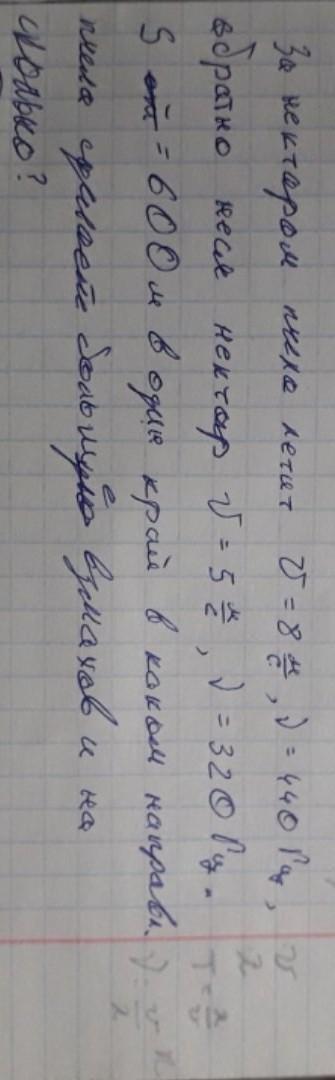 За нектаром пчела летит υ = 8 м/с, ν = 440 Гц,
обратно неся нектар υ = 5 м/с, ν = 320 Гц.
S = 600 м в один край в каком направл.
пчела сделает больше взмахов и на
сколько?